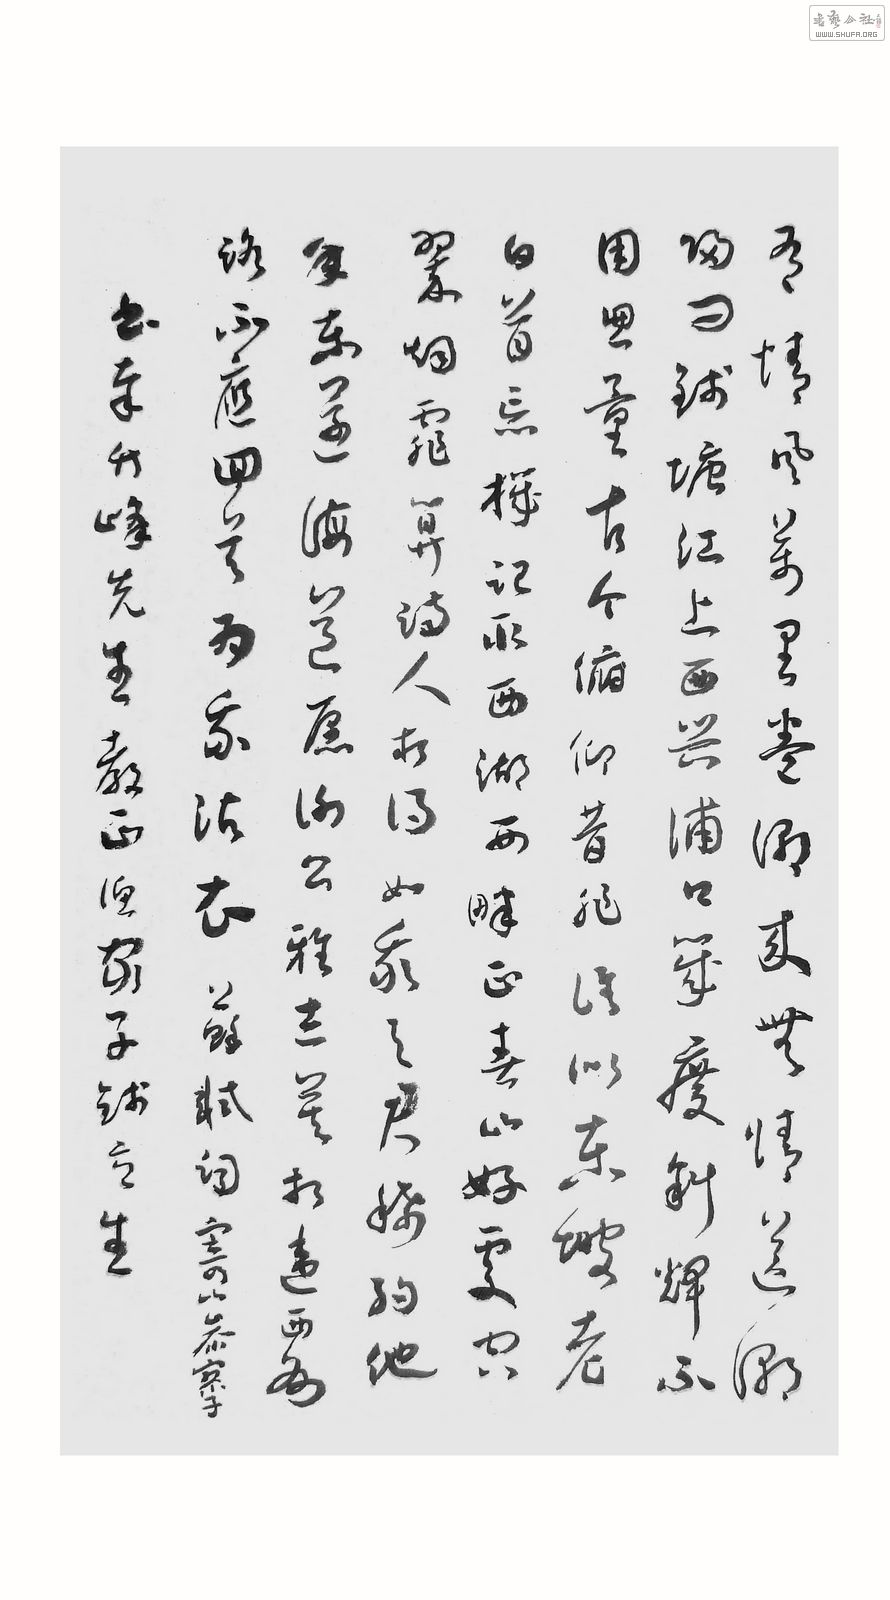 有情风万里卷潮来无情送潮
归问钱塘江上西兴浦口几度斜晖不
用思量古今俯仰昔非谁似东坡老
白首忘机记取西湖西畔正春山好处空
翠烟霏算诗人相得如我与君稀约他
年东还海道愿谢公雅志莫相违西州
路不应回首为我沾衣 苏轼词寄参寥子
书奉 峰先生教正 家子钱立生
WWW.SHUFA.ORG